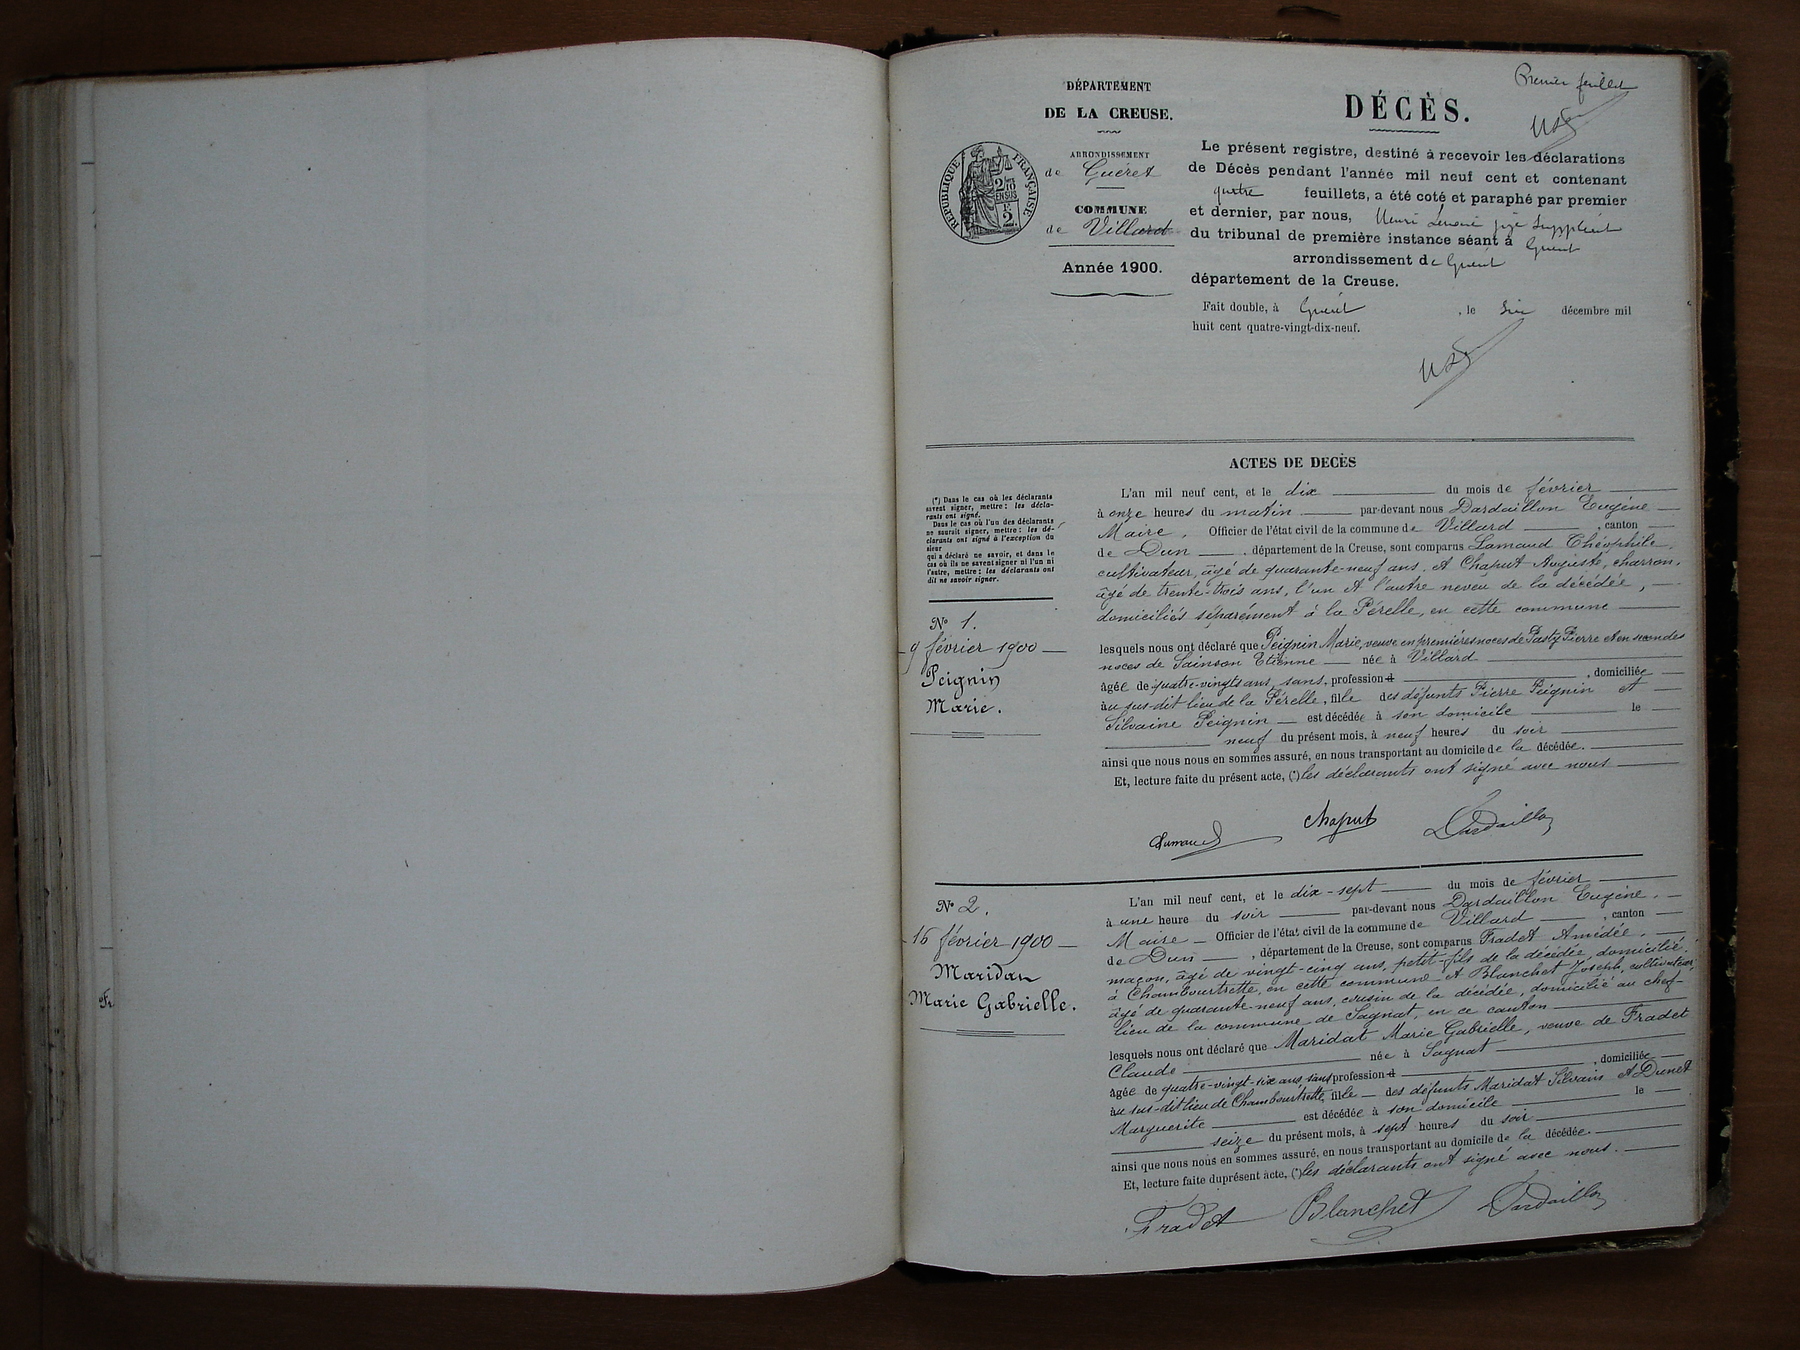 Premier feuillet
DÉPARTEMENT
DE LA CREUSE.
ARRONDISSEMENT
de Guéret
COMMUNE
de Villard
Année 1900.
RÉPUBLIQUE FRANÇAISE
DÉCÈS.
Le présent registre, destiné à recevoir les déclarations
de Décès pendant l'année mil neuf cent et contenant
quatre feuillets, a été coté et paraphé par premier
et dernier, par nous, Henri juge Suppléant
du tribunal de première instance séant à Guéret
arrondissement de Guéret
département de la Creuse.
Fait double, à Guéret, le six décembre mil
huit cent quatre-vingt-dix-neuf.
ACTES DE DECÈS
(*) Dans le cas où les déclarants
savent signer, mettre : les décla-
rants ont signé.
Dans le cas où l'un des déclarants
ne saurait signer, mettre : les dé-
clarants ont signé à l'exception du
sieur
qui a déclaré ne savoir, et dans le
cas où ils ne savent signer ni l'un ni
l'autre, mettre : les déclarants ont
dit ne savoir signer.
N° 1.
9 février 1900
Peignin
Marie.
L'an mil neuf cent, et le dix du mois de février
à onze heures du matin par-devant nous Dardaillon Eugène
Maire, Officier de l'état civil de la commune de Villard, canton
de Dun, département de la Creuse, sont comparus Lamaud Théophile,
cultivateur, âgé de quarante-neuf ans, et Chaput Auguste, charron,
âgé de trente-trois ans, l'un et l'autre neveu de la décédée,
domiciliés séparément à la Pérelle, en cette commune
lesquels nous ont déclaré que Peignin Marie, veuve en premières noces de Pasty Pierre et en secondes
noces de Sainson Etienne née à Villard
âgée de quatre-vingts ans, sans, profession d, domiciliée
au sus-dit lieu de la Pérelle, fille des défunts Pierre Peignin et
Silvaine Peignin est décédée à son domicile le
neuf du présent mois, à neuf heures du soir
ainsi que nous nous en sommes assuré, en nous transportant au domicile de la décédée.
Et, lecture faite du présent acte, (*) les déclarants ont signé avec nous
Lamaud Chaput Dardaillon
N° 2.
16 février 1900
Maridan
Marie Gabrielle.
L'an mil neuf cent, et le dix-sept du mois de février
à une heure du soir par-devant nous Dardaillon Eugène,
Maire Officier de l'état civil de la commune de Villard, canton
de Dun, département de la Creuse, sont comparus Fradet Amédée,
maçon, âgé de vingt-cinq ans, petit-fils de la décédée, domicilié
à Chambourtrette, en cette commune et Blanchet Joseph, cultivateur,
âgé de quarante-neuf ans, cousin de la décédée, domicilié au chef-
lieu de la commune de Sagnat, en ce canton
lesquels nous ont déclaré que Maridat Marie Gabrielle, veuve de Fradet
Claude née à Sagnat
âgée de quatre-vingt-six ans, sans profession d, domiciliée
au sus-dit lieu de Chambourtrette, fille des défunts Maridat Silvain et Dunet
Marguerite est décédée à son domicile le
seize du présent mois, à sept heures du soir
ainsi que nous nous en sommes assuré, en nous transportant au domicile de la décédée.
Et, lecture faite du présent acte, (*) les déclarants ont signé avec nous.
Fradet Blanchet Dardaillon